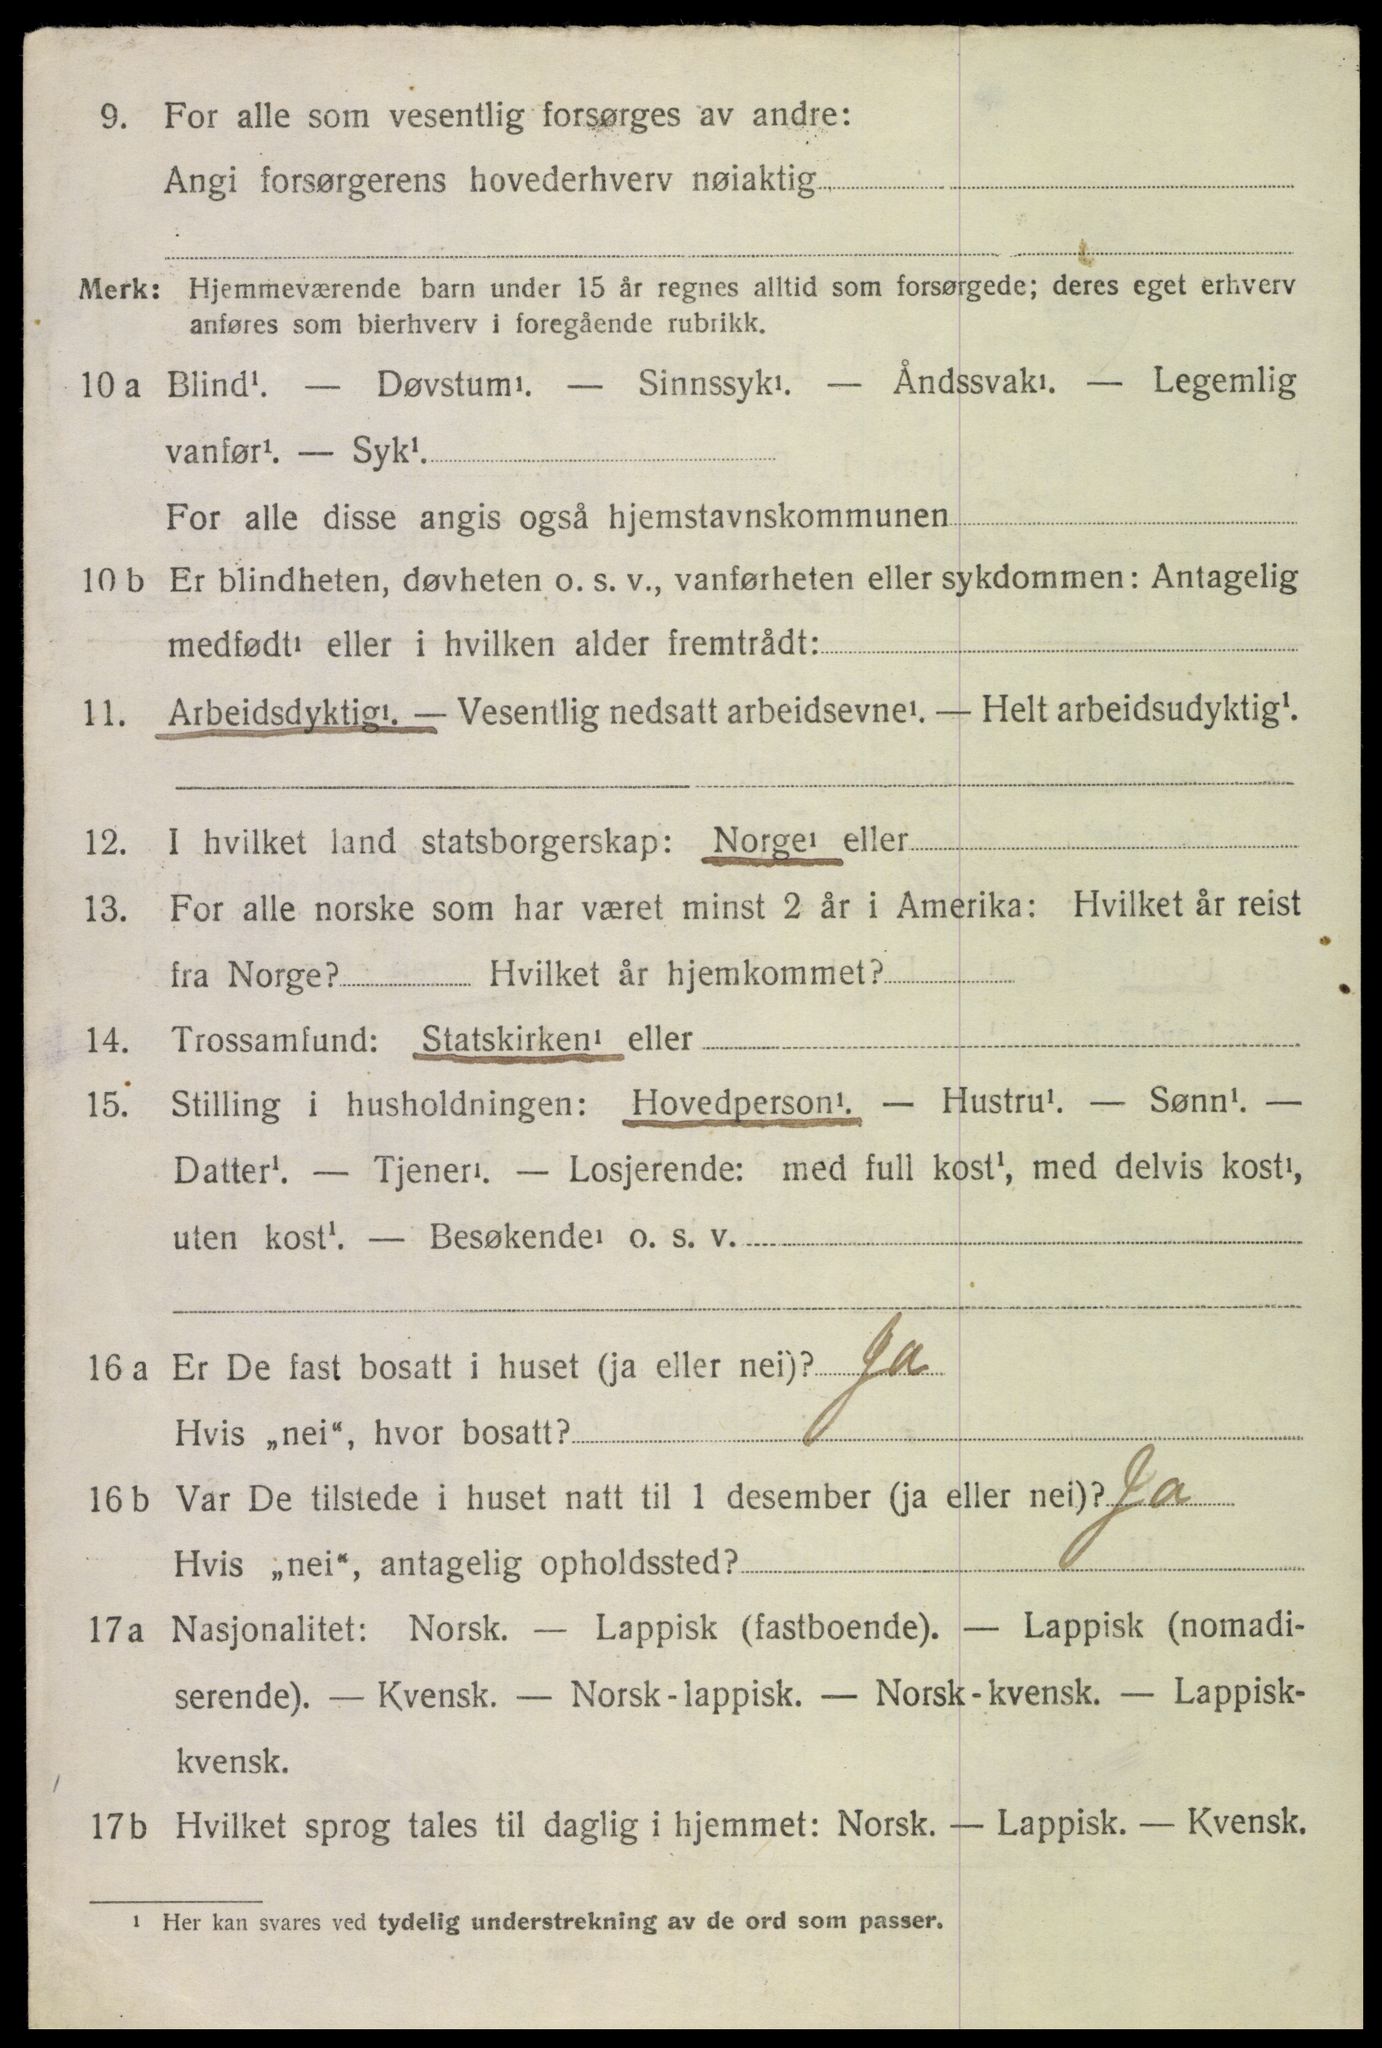 9. For alle som vesentlig forsørges av andre:
Angi forsørgerens hovederhverv nøiaktig
Merk: Hjemmeværende barn under 15 år regnes alltid som forsørgede; deres eget erhverv
anføres som bierhverv i foregående rubrikk.
10 a Blind¹. — Døvstum¹. — Sinnssyk¹. — Åndssvak¹. — Legemlig
vanfør¹. — Syk¹.
For alle disse angis også hjemstavnskommunen
10 b Er blindheten, døvheten o. s. v., vanførheten eller sykdommen: Antagelig
medfødt¹ eller i hvilken alder fremtrådt:
11. Arbeidsdyktig¹. — Vesentlig nedsatt arbeidsevne¹. — Helt arbeidsudyktig¹.
12. I hvilket land statsborgerskap: Norge¹ eller
13. For alle norske som har været minst 2 år i Amerika: Hvilket år reist
fra Norge? Hvilket år hjemkommet?
14. Trossamfund: Statskirken¹ eller
15. Stilling i husholdningen: Hovedperson¹. — Hustru¹. — Sønn¹. —
Datter¹. — Tjener¹. — Losjerende: med full kost¹, med delvis kost¹,
uten kost¹. — Besøkende¹ o. s. v.
16 a Er De fast bosatt i huset (ja eller nei)? Ja
Hvis „nei“, hvor bosatt?
16 b Var De tilstede i huset natt til 1 desember (ja eller nei)? Ja
Hvis „nei“, antagelig opholdssted?
17 a Nasjonalitet: Norsk. — Lappisk (fastboende). — Lappisk (nomadi-
serende). — Kvensk. — Norsk-lappisk. — Norsk-kvensk. — Lappisk-
kvensk.
17 b Hvilket sprog tales til daglig i hjemmet: Norsk. — Lappisk. — Kvensk.
¹ Her kan svares ved tydelig understrekning av de ord som passer.